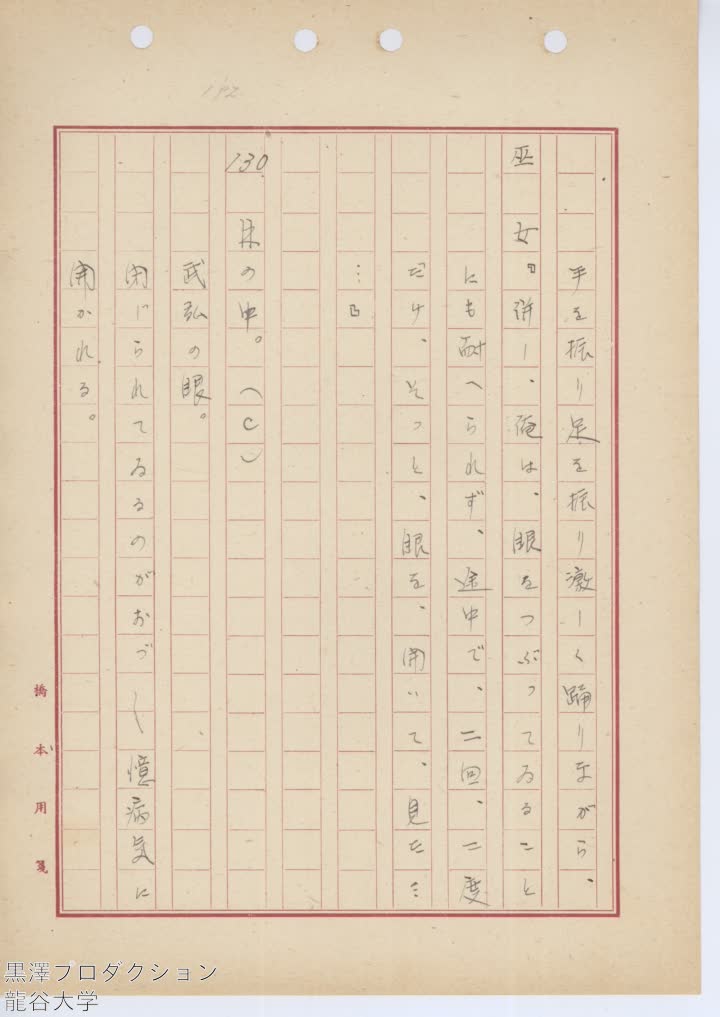 192
手を振り足を振り激しく踊りながら、
巫　女『併し、俺は、眼をつぶってゐること
にも耐へられず、途中で、二回、二度
だけ、そっと、眼を、開いて、見た…
…』
130　林の中。（C）
武弘の眼。
閉じられてゐるのがおづ〳〵憶病気に
開かれる。
橋本用箋
黒澤プロダクション
龍谷大学